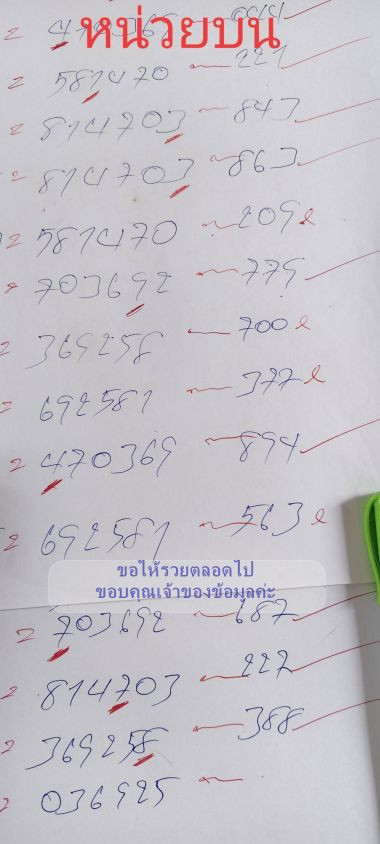 หน่วยบน
= 581470 221
= 814703 843
= 814703 863
= 581470 209 ℓ
= 703692 779
= 369258 700 ℓ
= 692581 377 ℓ
= 470369 894
= 692581 563 ℓ
ขอให้รวยตลอดไป
ขอบคุณเจ้าของข้อมูลค่ะ
= 703692 687
= 814703 227
= 369258 388
= 036925